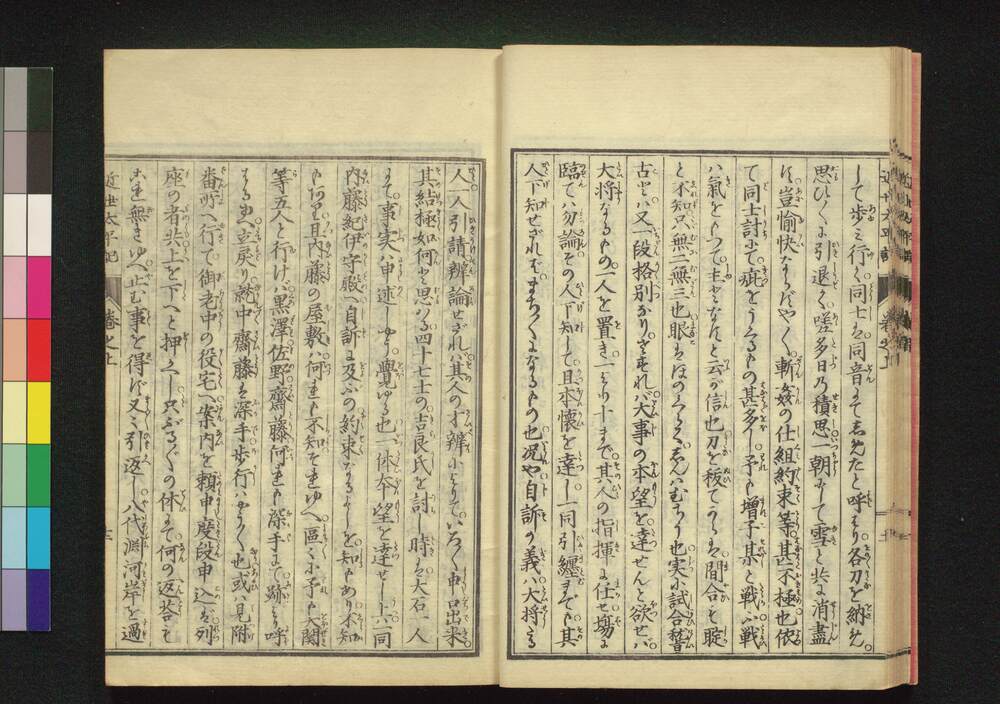 して歩ミ行く同士も同音にてしめたと呼はり各刀を納め
思ひ〳〵に引退く嗟多日乃積思一朝にして雪と共に消盡
す豈愉快ならずや〳〵斬姦の仕組約束等甚不極也依
て同士討にて疵をうくるもの甚多し予も増子某と戦ふ戦
ハ氣をもつて主となすと云が信也刀を抜てからは間合も聢
と不知只無二無三也眼もほのくらくしんはむちう也実に試合稽
古とハ又一段格別なりさすれバ大事の本望を達せんと欲せバ
大将なるもの一人を置き一より十まで其人の指揮に任せ場に
臨てハ勿論その人下知して且本懐を達し一同引纏まで其
人下知せざれバまちまちになるもの也况や自訴の義ハ大将たる
人一人引請辨論せざれバ其人の才辨によりていろ〳〵申口出来
其結極如何と思はる四十七士の吉良氏を討し時も大石一人
にて事実ハ申述しよし覺ゆる也一体本望を達せし上一同
内藤紀伊守殿へ自訴に及ぶの約束なるよしを知もあり不知
もあり且内藤の屋敷ハ何れも不知それゆへ區々に予も大関
等五人と行けバ黒澤佐野齋藤何れも深手にて跡より呼
はる由へ立戻り就中齋藤は深手歩行ハむつかしく也或ハ見附
番所へ行て御老中の役宅へ案内を頼申度段申込めバ列
座の者共上を下へと押かへし只ぶるぶるの休にて何の返答も
これ無きゆへ止む事を得ず又々引返し八代渕河岸を過
近世太平記
巻之上